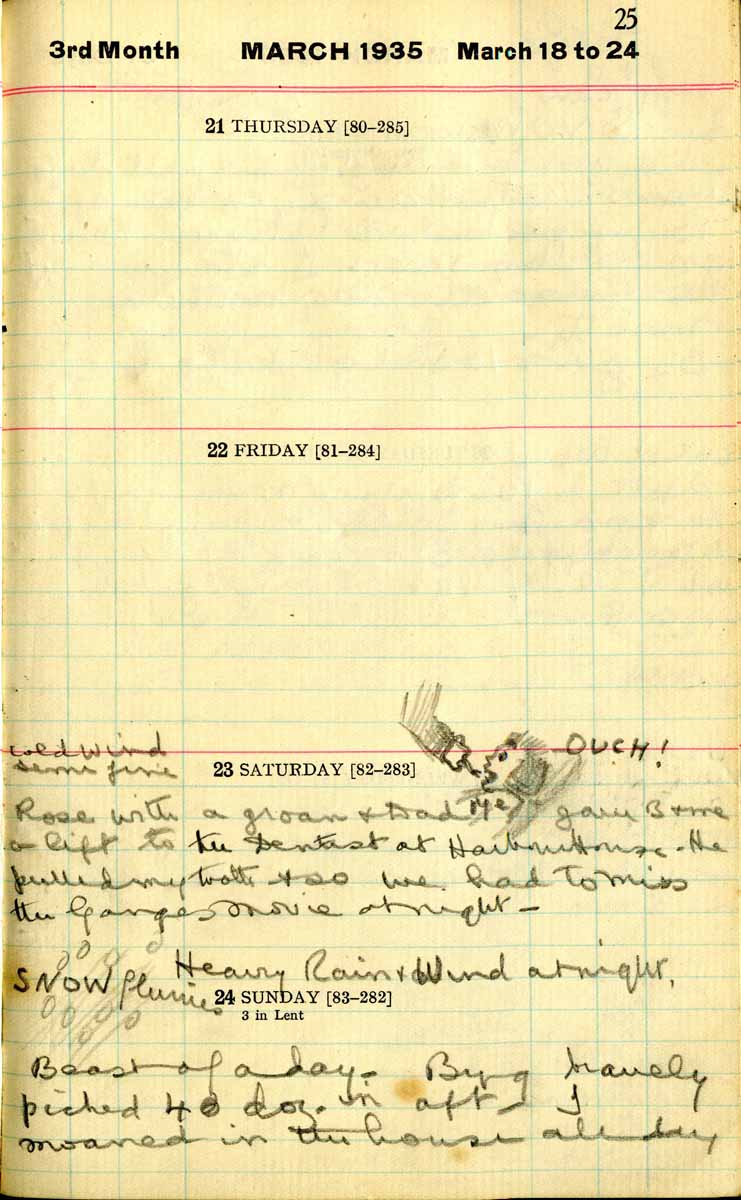 25
3rd Month MARCH 1935 March 18 to 24
21 THURSDAY [80–285]
22 FRIDAY [81–284]
cold wind OUCH!
semi fine
23 SATURDAY [82–283]
me
Rose with a groan & Dad gave B & me
a lift to the Dentist at Harbour House. He
pulled my tooth & so we had to miss
the Ganges Movie at night –
Heavy Rain & Wind at night,
SNOW flurries
24 SUNDAY [83–282]
3 in Lent
Beast of a day. Byng bravely
picked 40 doz. in aft – I
moaned in the house all day